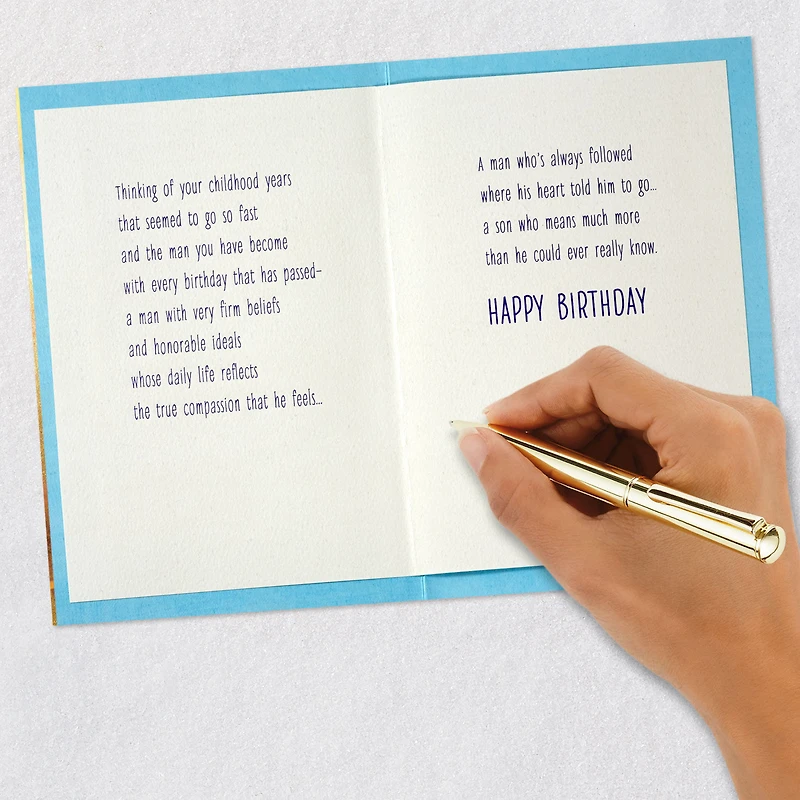 Thinking of your childhood years
that seemed to go so fast
and the man you have become
with every birthday that has passed–
a man with very firm beliefs
and honorable ideals
whose daily life reflects
the true compassion that he feels...
A man who's always followed
where his heart told him to go...
a son who means much more
than he could ever really know.
HAPPY BIRTHDAY